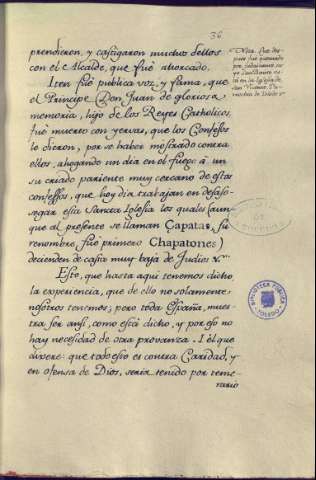 36
prendieron, y castigaron muchos dellos
con el Alcalde, que fuè ahorcado.
Iten fuè publica voz, y fama, que
el Principe Don Juan de gloriosa
memoria, hijo de los Reyes Catholicos,
fuè muerto con yervas, que los Confessos
le dieron, por se haber mostrado contra
ellos, ahogando un dia en el fuego à un
su criado pariente muy cercano de estos
confessos, que hoy dia trabajan en desasso-
segar esta Sancta Iglesia los quales (aun-
que al presente se llaman Çapatas, su
renombre fuè primero Chapatones)
decienden de casta muy baja de Judios &.
Esto, que hasta aqui tenemos dicho,
la experiencia, que de ello no solamente
nosotros tenemos; pero toda España, mues-
tra ser ansi, como está dicho, y por eso no
hay necesidad de otra provanza. I el que
dixere: que todo esto es contra Caridad, y
en ofensa de Dios, seria tenido por teme-
rario
Nota. Fue des-
pues
BIBLIOTECA PUBLICA
TOLEDO